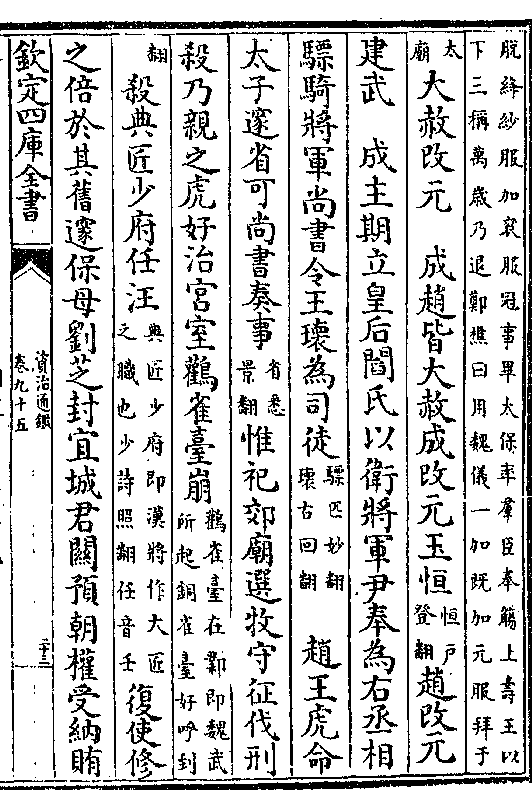 脫絳紗服加衮服冠事畢太保率羣臣奉觴上壽王以
下三稱萬歲乃退鄭樵曰用魏儀一加既加元服拜于
太
廟
大赦改元　成趙皆大赦成改元玉恒
恒戸
登翻
趙改元
建武　成主期立皇后閻氏以衛將軍尹奉為右丞相
驃騎將軍尚書令王瓌為司徒
驃匹妙翻
瓌古回翻
趙王虎命
太子邃省可尚書奏事
省悉
景翻
惟祀郊廟選牧守征伐刑
殺乃親之虎好治宮室鸛雀臺崩
鸛雀臺在鄴即魏武
所起銅雀臺好呼到
翻
殺典匠少府任汪
典匠少府即漢將作大匠
之職也少詩照翻任音壬
復使修
之倍於其舊邃保母劉芝封宜城君關預朝權受納賄
欽定四庫全書
資治通鑑
卷九十五
二十三